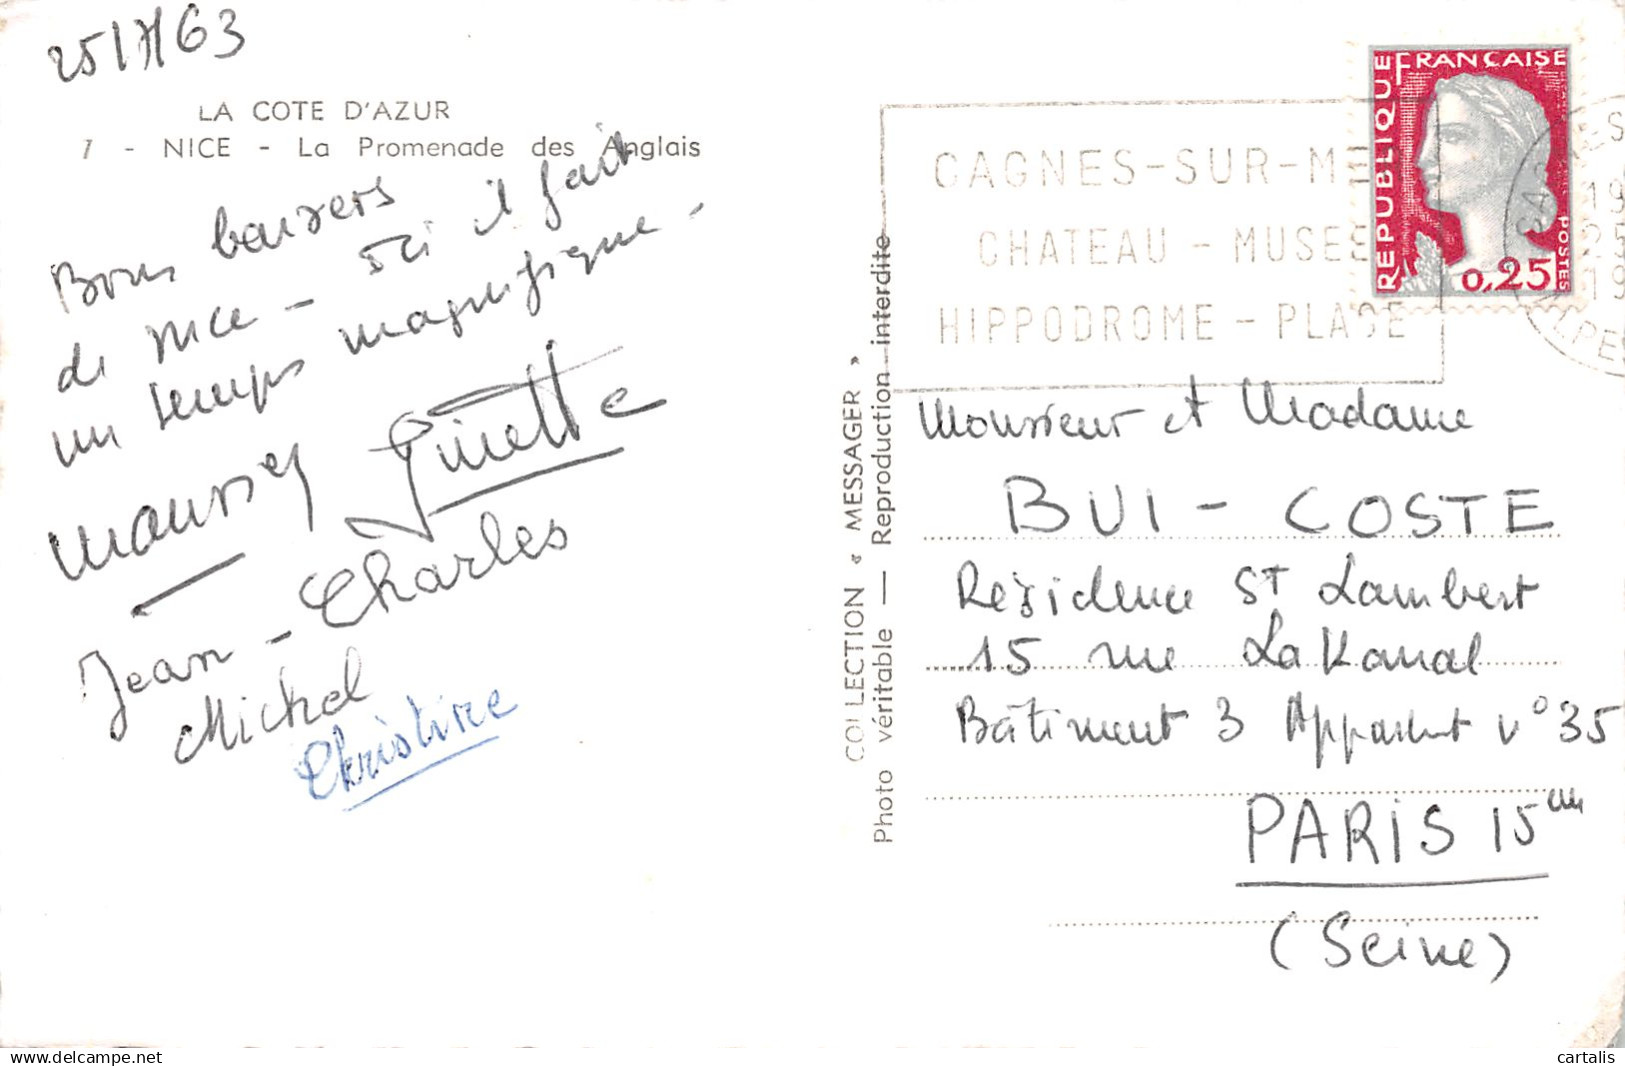 25/7/63
LA COTE D'AZUR
1 - NICE - La Promenade des Anglais
Bons baisers
de Nice - Ici il fait
un temps magnifique -
Ginette
Jean - Charles
Michel
Christine
COLLECTION « MESSAGER »
Photo véritable — Reproduction interdite
CAGNES-SUR-ME
CHATEAU - MUSEE
HIPPODROME - PLAGE
REPUBLIQUE FRANÇAISE
POSTES
0,25
Monsieur et Madame
BUI - COSTE
Résidence St Lambert
15 rue LaKanal
Bâtiment 3 Appartmt n° 35
PARIS 15em
(Seine)
cartalis